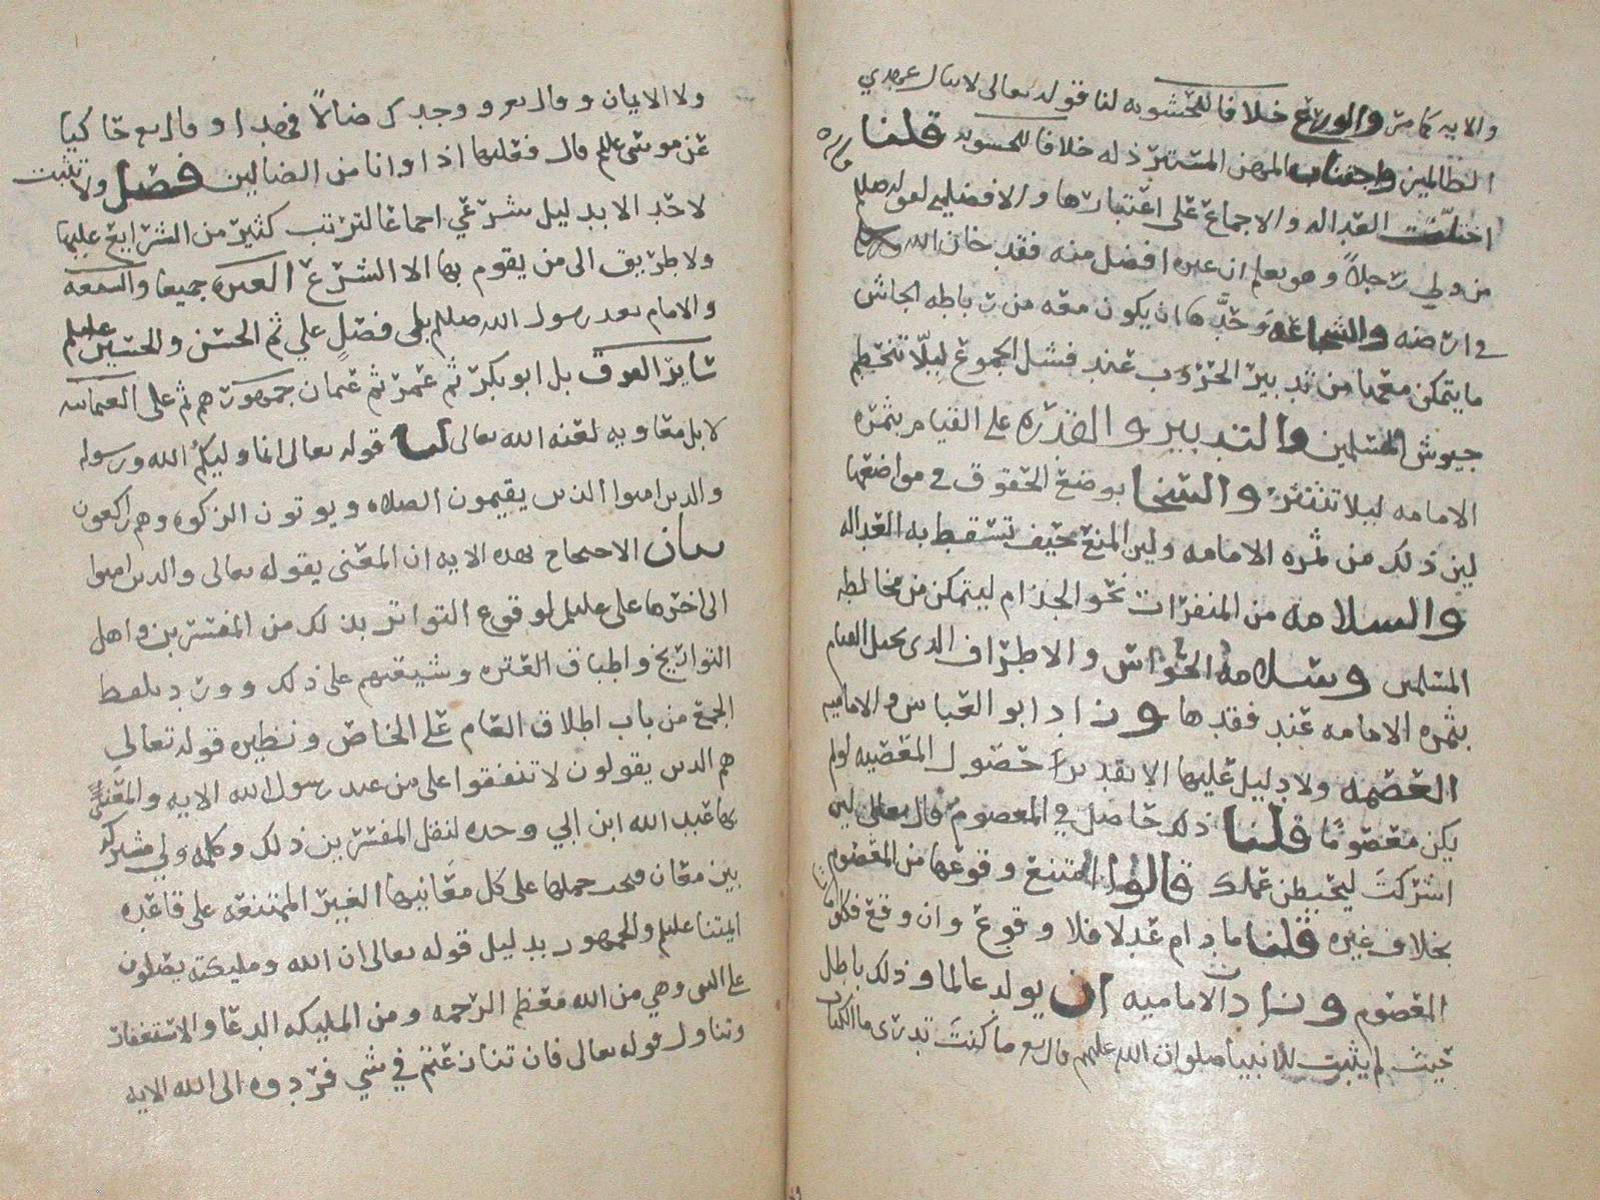 والايه كما مر والورع خلافا للحشويه لنا قوله تعالى لا ينال عهدي
الظالمين واجتناب المهن المسترذله خلافا للحشويه قلنا
اختلت العداله والاجماع على اعتبارها والافضليه لقوله صللم
من ولي رجلاً وهو يعلم ان غيره افضل منه فقد خان الله
في ارضه والشجاعه وحدَّها ان يكون معه من رباطه الجاش
ما يتمكن معها من تدبير الحروب عند فشل الجموع ليلّا تنحطم
جيوش المسلمين والتدبير والقدره على القيام بثمره
الامامه ليلا تنتثر والسخا بوضع الحقوق في مواضعها
لين ذلك من ثمره الامامه ولين المنع حيف تسقط به العداله
والسلامه من المنفرات نحو الجذام ليتمكن من مخالطه
المسلمين وسلامه الحواس والاطراف الذي يختل القيام
بثمره الامامه عند فقدها وزاد ابو العباس والاماميه
العصمه ولا دليل عليها الا تقدير حصول المعصيه لو لم
يكن معصومًا قلنا ذلك حاصل في المعصوم قال تعالى لين
اشركتَ ليحبطن عملك قالوا امتنع وقوعها من المعصوم
بخلاف غيره قلنا ما دام عدلا فلا وقوع وان وقع فكلو
المعصوم وزاد الاماميه ان يولد عالما وذلك باطل
حيث لم يثبت للانبيا صلوات الله عليهم قال تع ما كنتَ تدرى ما الكتاب
ولا الايمان وقال تع ووجدك ضالاً فهدا وقال تع حاكيا
عن موسى علم قال فعلتها اذا وانا من الضالين فصل ولا تثبت
لاحد الا بدليل شرعي اجماعا لترتب كثير من الشرايع عليها
ولا طريق الى من يقوم بها الا الشرع العتره جميعا والشيعه
والامام بعد رسول الله صللم بلى فصلٍ علي ثم الحسن والحسين عليلم
سايز الفرق بل ابو بكر ثم عمر ثم عثمان جمهورهم ثم على العثمانيه
لا بل معاويه لعنه الله تعالى لنا قوله تعالى انما وليكم الله ورسوله
والذين امنوا الذين يقيمون الصلاه ويوتون الزكوه وهم راكعون
بيان الاحتجاج بهذه الايه ان المعنى بقوله تعالى والذين امنوا
الى اخرها على عليلم لوقوع التواتر بذلك من المفسرين واهل
التواريخ واطباق العتره وشيعتهم على ذلك وورد بلفظ
الجمع من باب اطلاق العام على الخاص ونظيره قوله تعالى
هم الذين يقولون لا تنفقوا على من عند رسول الله الايه والمعنيُّ
بها عبد الله ابن ابي وحده لنقل المفسرين ذلك وكلمه ولي مشتركه
بين معان فيجب حملها على كل معانيها الغير الممتنعه على قاعده
ايمتنا عليلم والجمهور بدليل قوله تعالى ان الله ومليكته يصلون
على النبى وهي من الله معظم الرحمه ومن المليكه الدعا والاستغفار
وتناول قوله تعالى فان تنازعتم في شي فردوه الى الله الايه